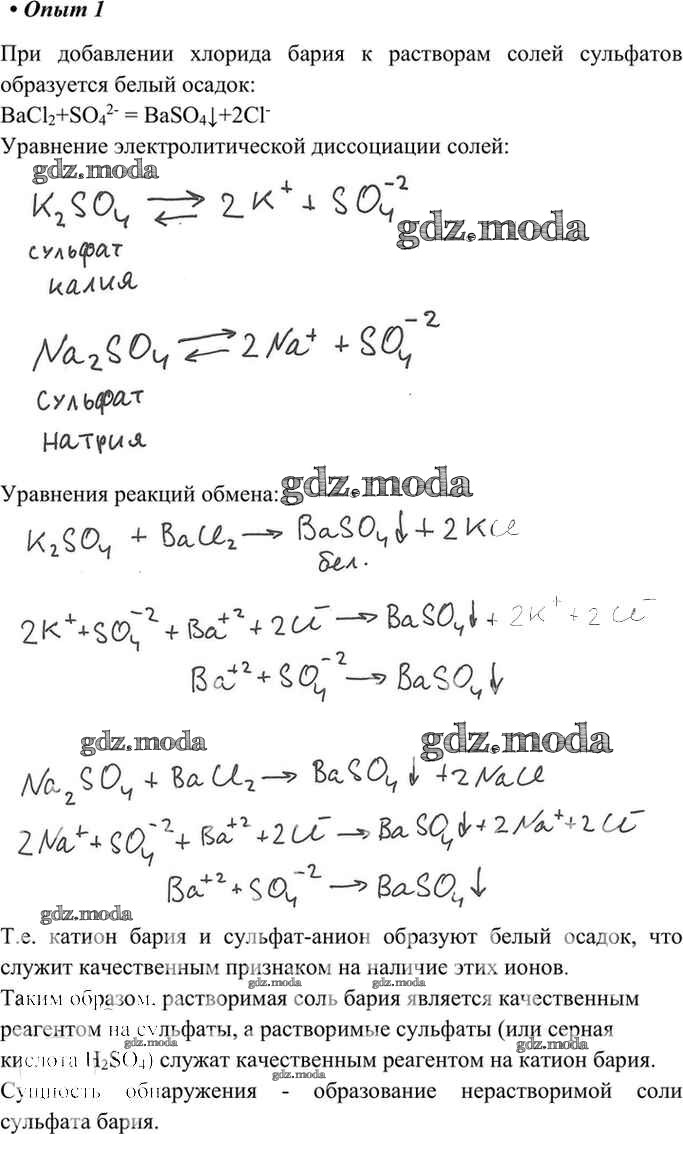 • Опыт 1
При добавлении хлорида бария к растворам солей сульфатов
образуется белый осадок:
BaCl₂+SO₄²⁻ = BaSO₄↓+2Cl⁻
Уравнение электролитической диссоциации солей:
gdz.moda
K₂SO₄ ⇄ 2K⁺ + SO₄⁻²
gdz.moda
сульфат
калия
Na₂SO₄ ⇄ 2Na⁺ + SO₄⁻²
сульфат
натрия
Уравнения реакций обмена: gdz.moda
K₂SO₄ + BaCl₂ → BaSO₄↓ + 2KCl
бел.
2K⁺+SO₄⁻²+Ba⁺²+2Cl⁻ → BaSO₄↓+2K⁺+2Cl⁻
Ba⁺²+SO₄⁻² → BaSO₄↓
gdz.moda gdz.moda
Na₂SO₄ + BaCl₂ → BaSO₄↓+2NaCl
2Na⁺+SO₄⁻²+Ba⁺²+2Cl⁻ → BaSO₄↓+2Na⁺+2Cl⁻
Ba⁺²+SO₄⁻² → BaSO₄↓
gdz.moda
Т.е. катион бария и сульфат-анион образуют белый осадок, что
служит качественным признаком на наличие этих ионов.
gdz.moda gdz.moda
Таким образом, растворимая соль бария является качественным
gdz.moda
реагентом на сульфаты, а растворимые сульфаты (или серная
gdz.moda gdz.moda
кислота H₂SO₄) служат качественным реагентом на катион бария.
gdz.moda
Сущность обнаружения - образование нерастворимой соли
сульфата бария.